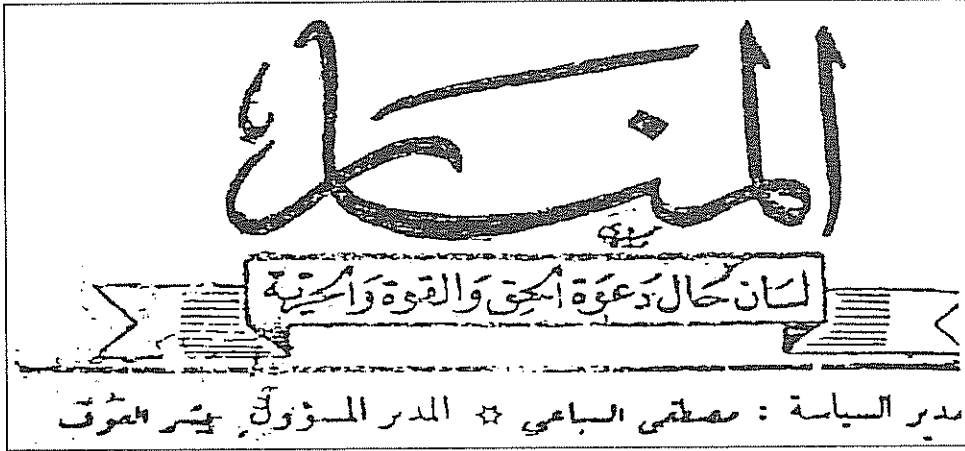 المنار
لسان حال دعوة الحق والقوة والحرية
مدير السياسة : مصطفى السباعي ☆ المدير المسؤول بشر العوف